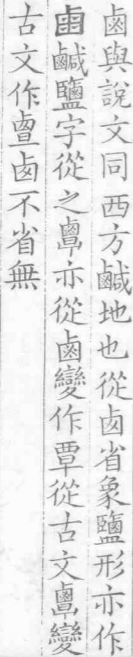 鹵與說文同西方鹹地也從卤省象鹽形亦作
鹹鹽字從之𪉷亦從鹵變作覃從古文𪉷變
古文作亶卤不省無